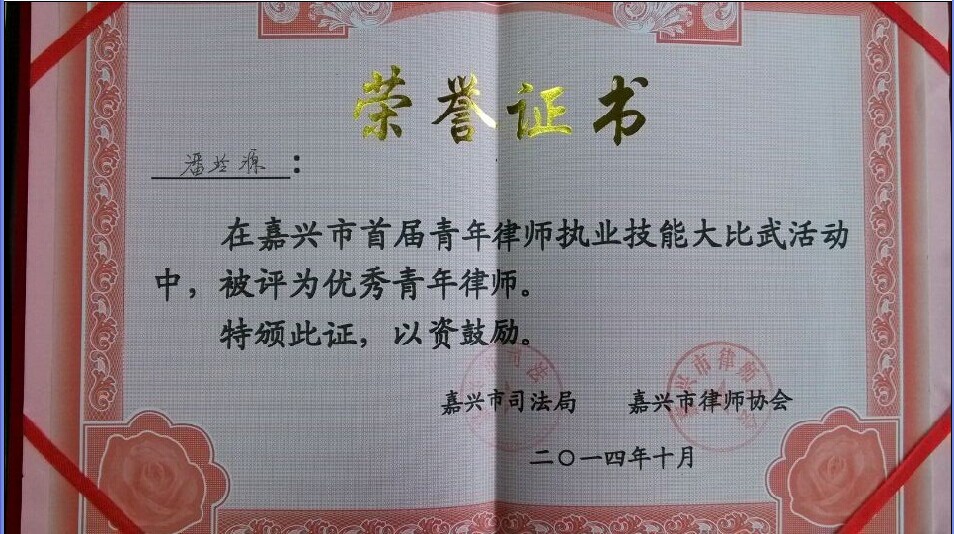 荣誉证书
潘玲源：
在嘉兴市首届青年律师执业技能大比武活动
中，被评为优秀青年律师。
特颁此证，以资鼓励。
嘉兴市司法局 嘉兴市律师协会
二〇一四年十月